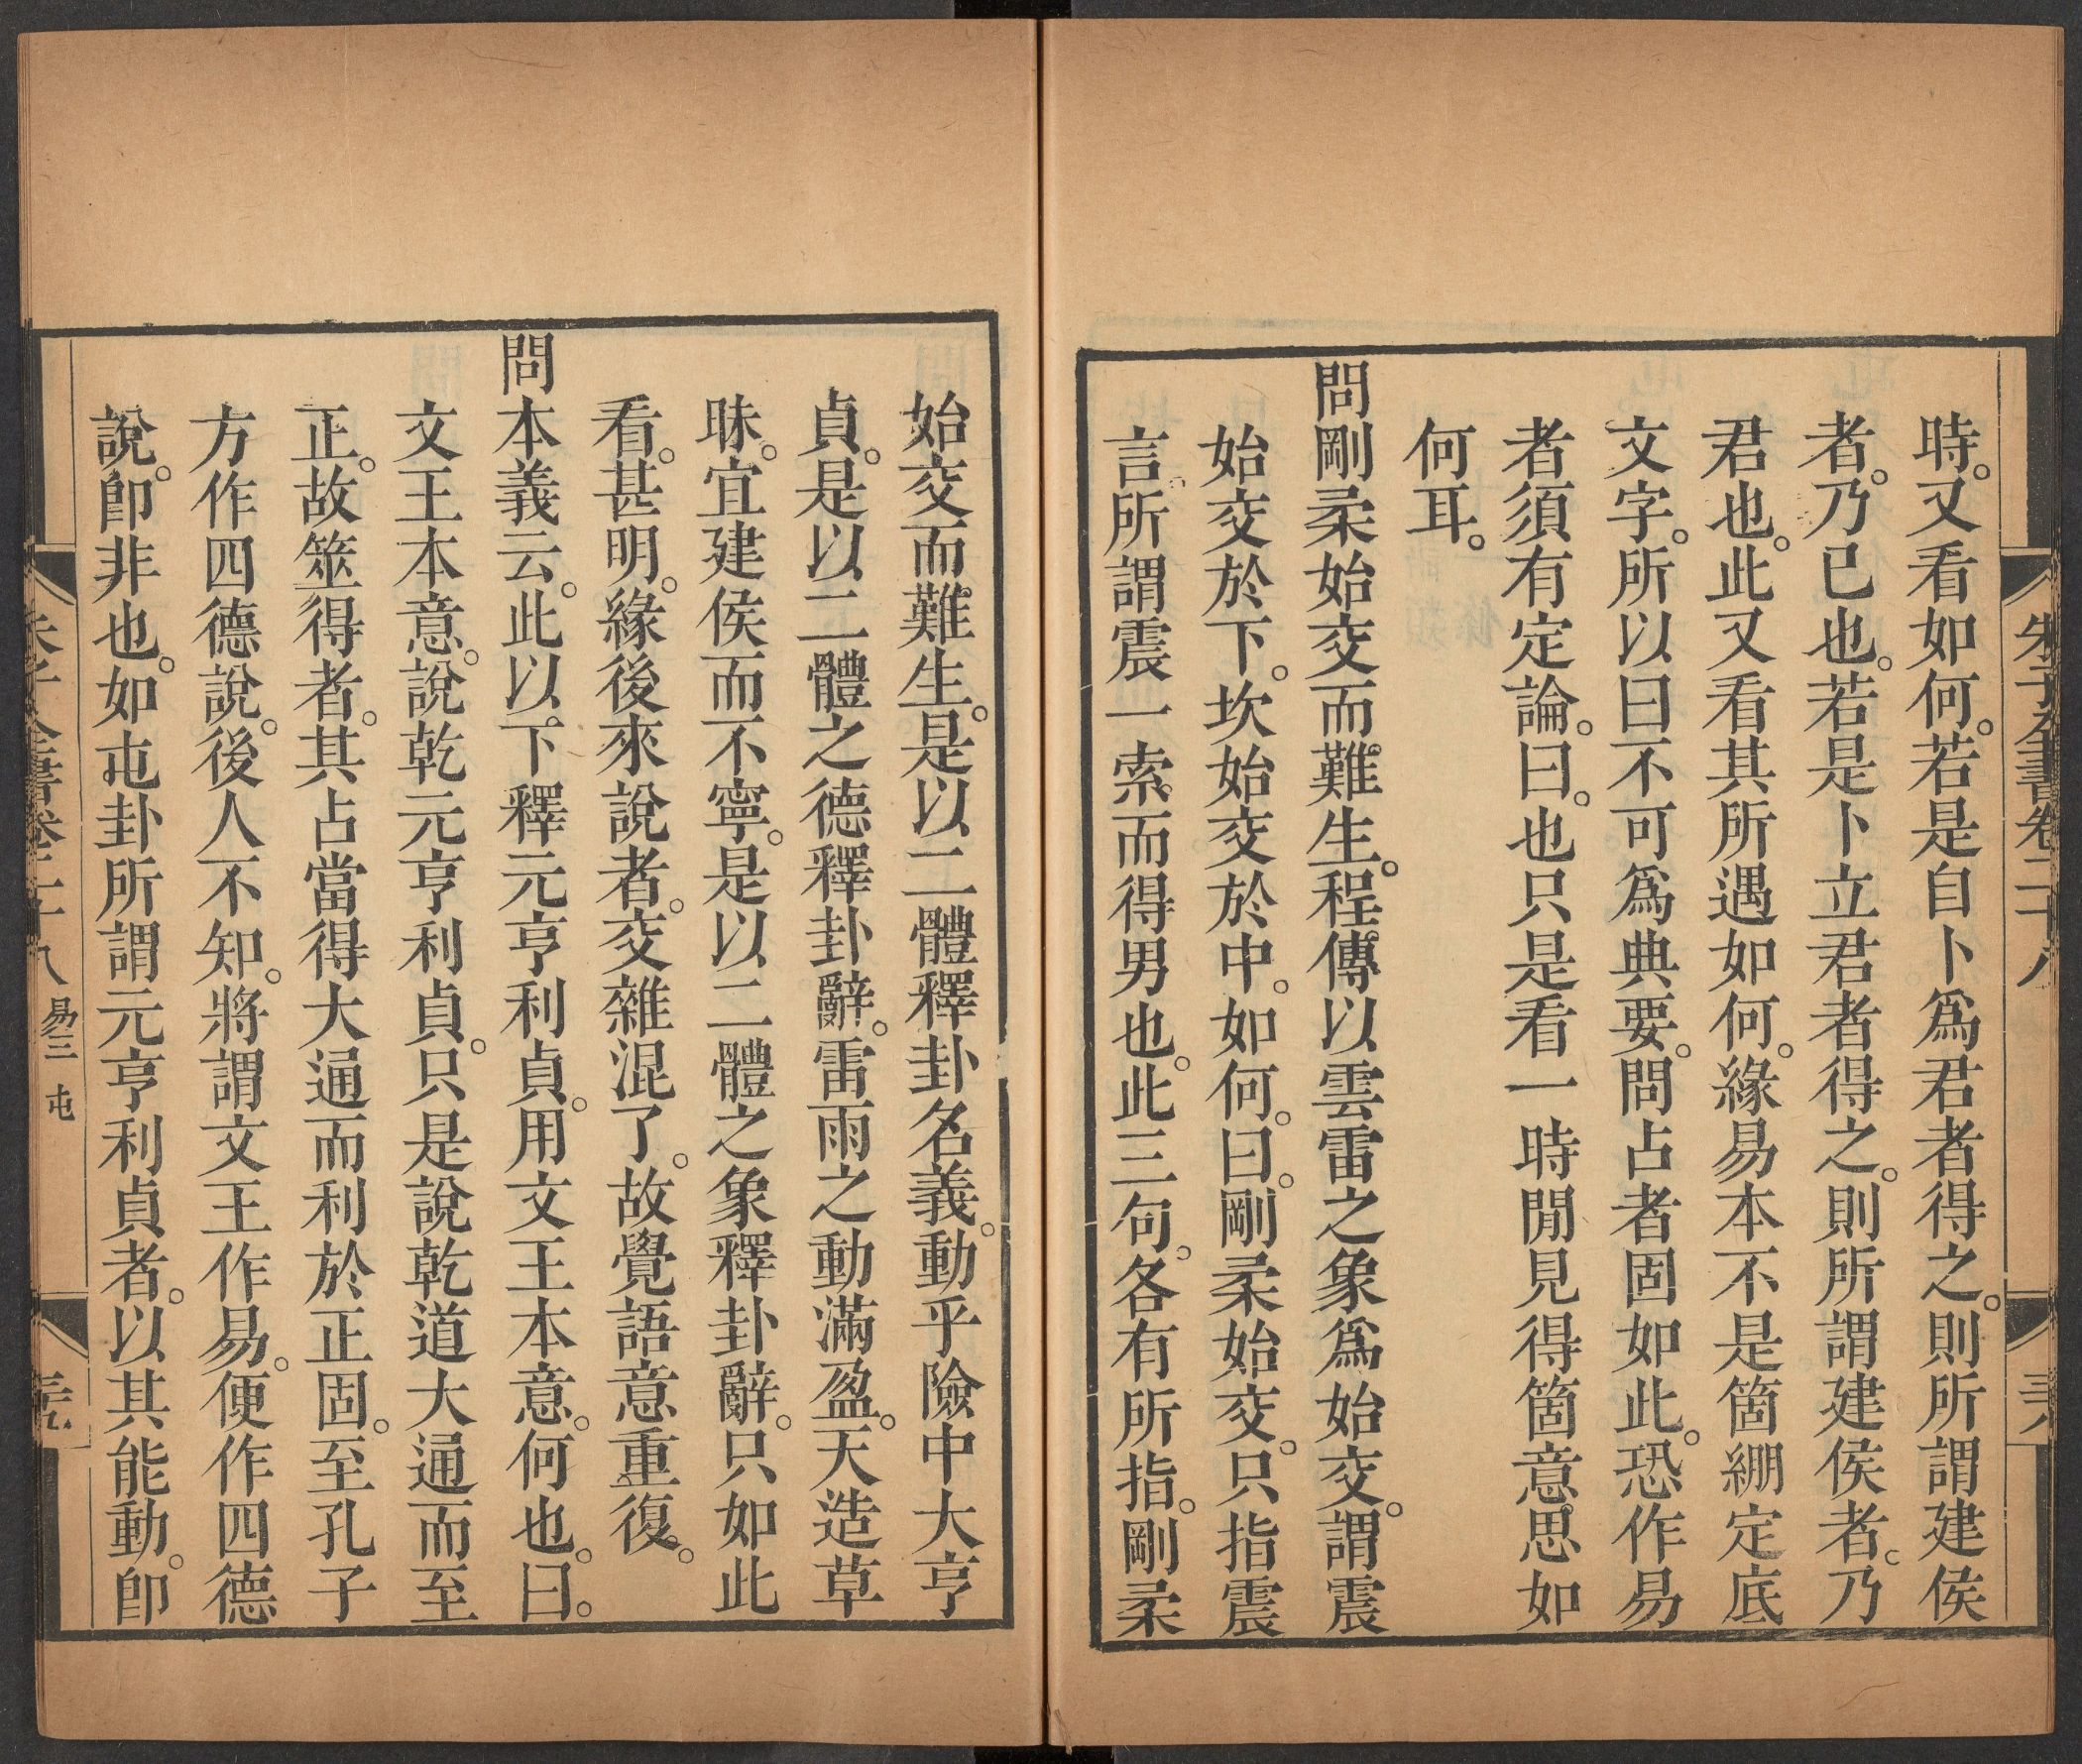 朱子全書卷二十八
三八
時。又看如何。若是自卜爲君者得之。則所謂建侯
者。乃己也。若是卜立君者得之。則所謂建侯者。乃
君也。此又看其所遇如何。緣易本不是箇綳定底
文字。所以曰不可爲典要。問占者固如此。恐作易
者須有定論。曰。也只是看一時閒見得箇意思如
何耳。
問剛柔始交而難生。程傳以雲雷之象爲始交。謂震
始交於下。坎始交於中。如何。曰。剛柔始交。只指震
言。所謂震一索而得男也。此三句。各有所指。剛柔
始交而難生。是以二體釋卦名義。動乎險中大亨
貞。是以二體之德釋卦辭。雷雨之動滿盈。天造草
昧。宜建侯而不寧。是以二體之象釋卦辭。只如此
看。甚明。緣後來說者。交雜混了。故覺語意重復。
問本義云。此以下釋元亨利貞。用文王本意。何也。曰。
文王本意。說乾元亨利貞。只是說乾道大通而至
正。故筮得者。其占當得大通而利於正固。至孔子
方作四德說。後人不知。將謂文王作易。便作四德
說。卽非也。如屯卦所謂元亨利貞者。以其能動。卽
朱子全書卷二十八 易三 屯